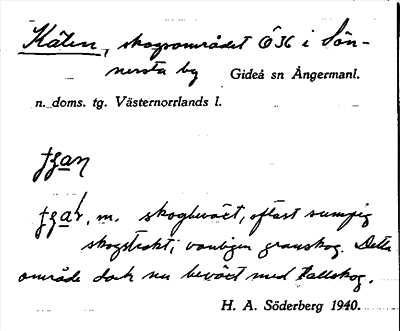 Kälen, skogsområdet Ö36 i Sön-
nersta by Gideå sn Ångermanl.
n. doms. tg. Västernorrlands l.
skogbeväxt, oftast sumpig
skogstrakt; vanligen granskog. Detta
område dock nu beväxt med tallskog.
H. A. Söderberg 1940.